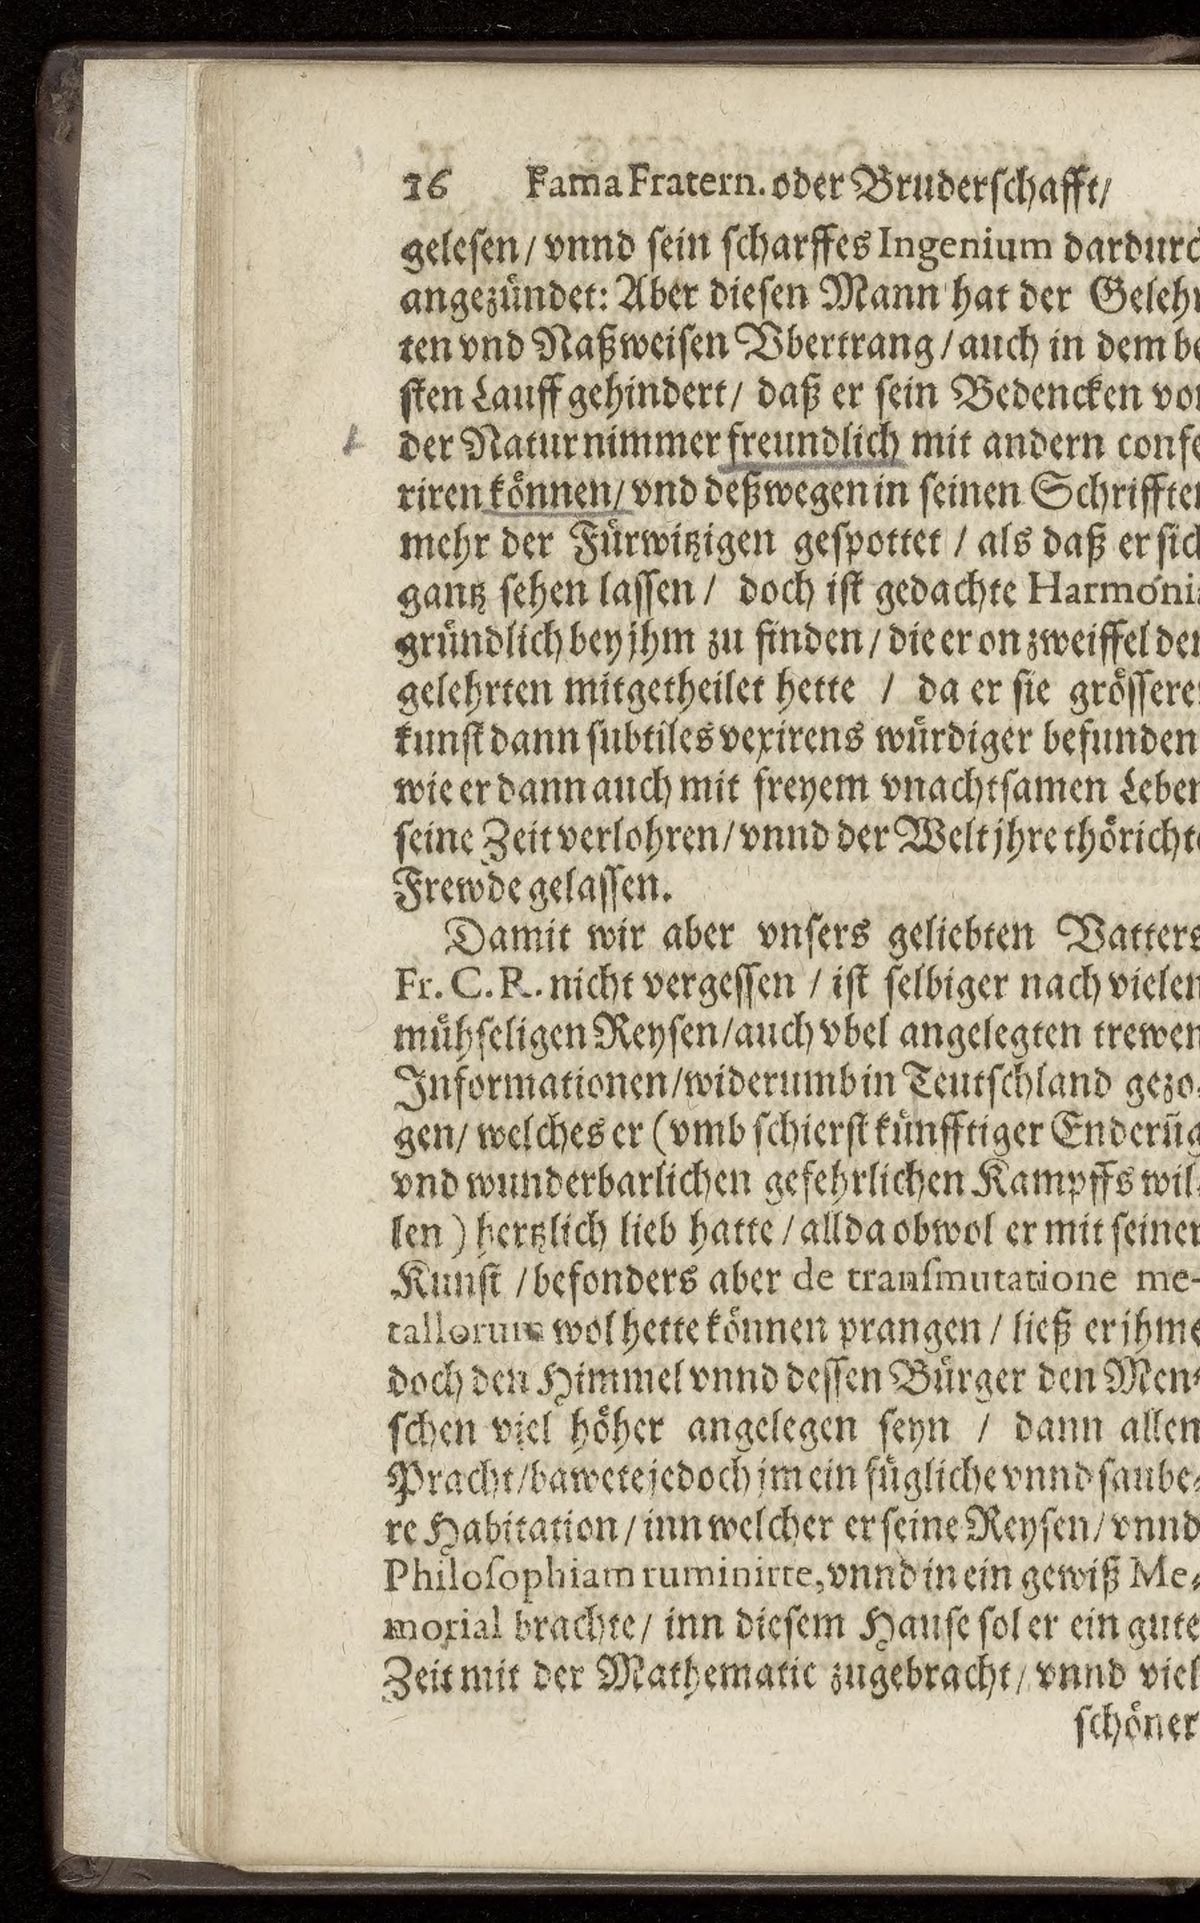 16 Fama Fratern. oder Bruderschafft/
gelesen/ vnnd sein scharffes Ingenium dardurc
angezündet: Aber diesen Mann hat der Geleh
ten vnd Naßweisen Vbertrang/ auch in dem be
sten Lauff gehindert/ daß er sein Bedencken vo
der Natur nimmer freundlich mit andern confe
riren können/ vnd deßwegen in seinen Schriffte
mehr der Fürwitzigen gespottet / als daß er sic
gantz sehen lassen / doch ist gedachte Harmoni
gründlich bey jhm zu finden/ die er on zweiffel de
gelehrten mitgetheilet hette / da er sie grössere
kunst dann subtiles vexirens würdiger befunden
wie er dann auch mit freyem vnachtsamen Leben
seine Zeit verlohren/ vnnd der Welt jhre thörichte
Frewde gelassen.
Damit wir aber vnsers geliebten Vatters
Fr. C. R. nicht vergessen / ist selbiger nach vielen
mühseligen Reysen/ auch vbel angelegten trewen
Informationen/ widerumb in Teutschland gezo-
gen/ welches er (vmb schierst künfftiger Enderũg
vnd wunderbarlichen gefehrlichen Kampffs wil-
len) hertzlich lieb hatte/ allda obwol er mit seiner
Kunst / besonders aber de transmutatione me-
tallorum wol hette können prangen/ ließ er jhme
doch den Himmel vnnd dessen Bürger den Men-
schen viel höher angelegen seyn / dann allen
Pracht/ bawete jedoch jm ein fügliche vnnd saube-
re Habitation/ inn welcher er seine Reysen/ vnnd
Philosophiam ruminirte, vnnd in ein gewiß Me-
morial brachte/ inn diesem Hause sol er ein gute
Zeit mit der Mathematic zugebracht/ vnnd viel
schöner